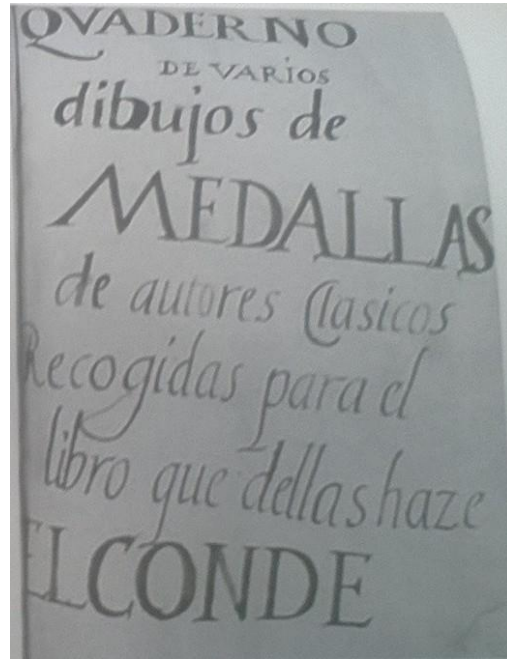 QVADERNO
DE VARIOS
dibujos de
MEDALLAS
de autores Clasicos
Recogidas para el
libro que dellas haze
EL CONDE